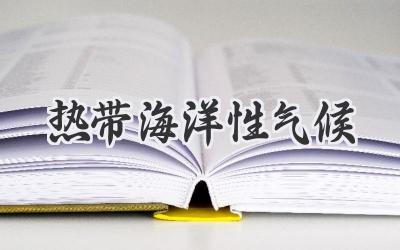 热带海洋性气候